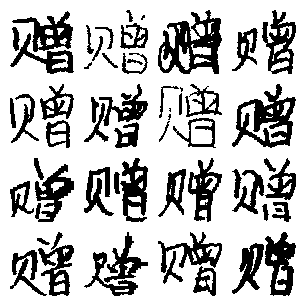 赠赠赠赠
赠赠赠赠
赠赠赠赠
赠赠赠赠